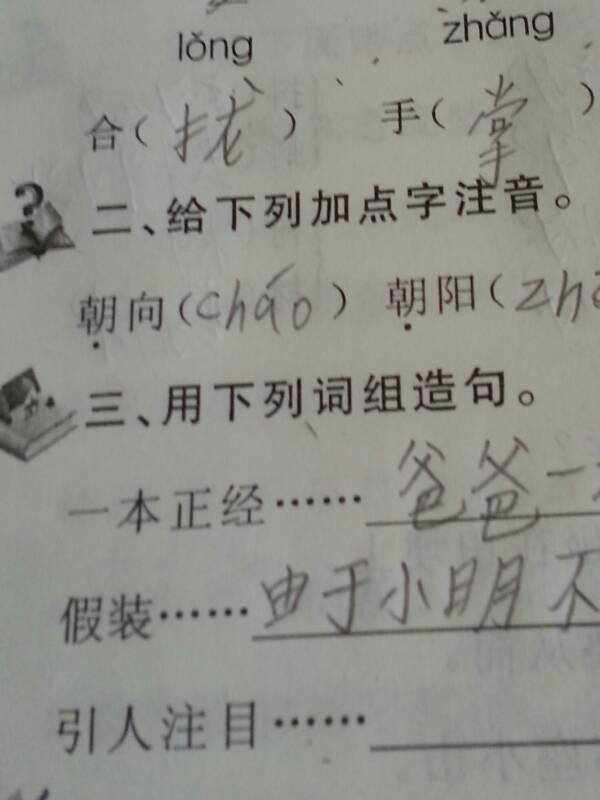 lǒng zhǎng
合(拢) 手(掌)
二、给下列加点字注音。
朝向(cháo) 朝阳(zhā
三、用下列词组造句。
一本正经……爸爸一
假装……由于小明不
引人注目……